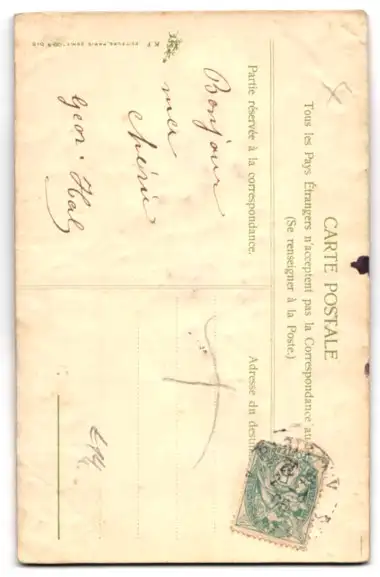 CARTE POSTALE
Tous les Pays Étrangers n'acceptent pas la Correspondance au
(Se renseigner à la Poste.)
Partie réservée à la correspondance.
Adresse du desti
Bonjour
ma
chérie
Geor. Hal